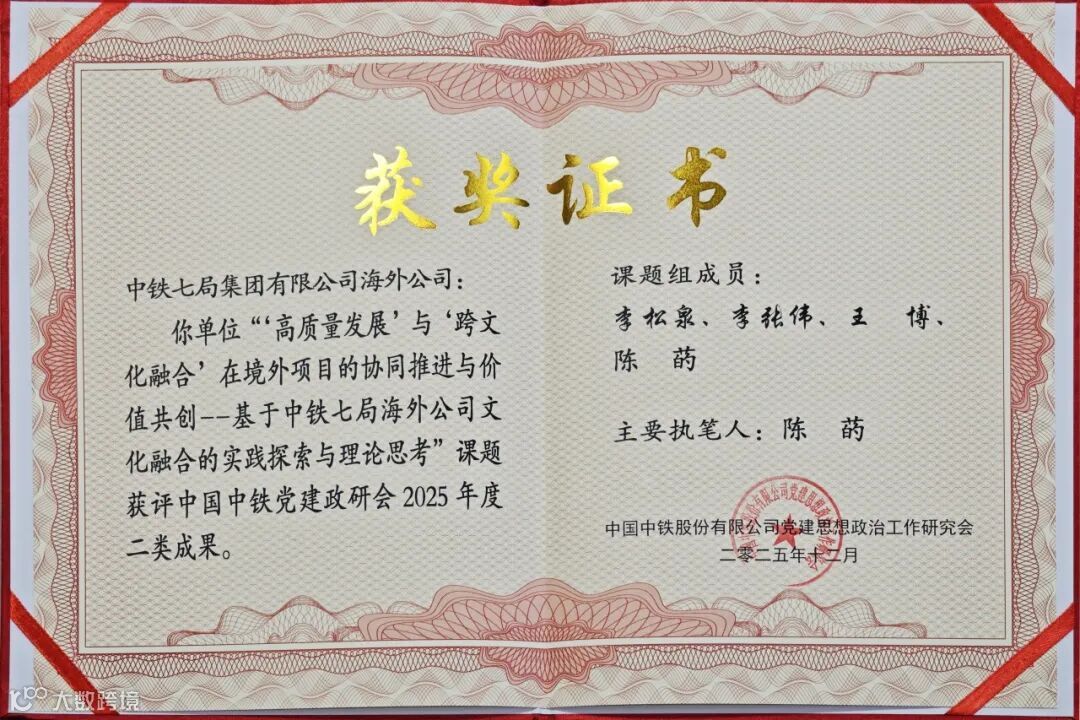 获奖证书
中铁七局集团有限公司海外公司：
你单位“‘高质量发展’与‘跨文
化融合’在境外项目的协同推进与价
值共创--基于中铁七局海外公司文
化融合的实践探索与理论思考”课题
获评中国中铁党建政研会2025年度
二类成果。
课题组成员：
李松泉、李张伟、王 博、
陈 菂
主要执笔人：陈 菂
中国中铁股份有限公司党建思想政治工作研究会
二零二五年十二月
大数跨境